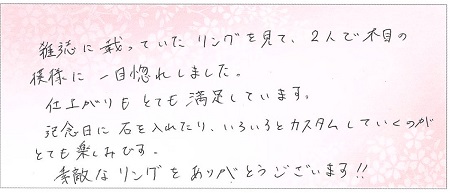 雑誌に載っていたリングを見て、2人で木目の
模様に一目惚れしました。
仕上がりもとても満足しています。
記念日に石を入れたり、いろいろとカスタムしていくのが
とても楽しみです。
素敵なリングをありがとうございます!!